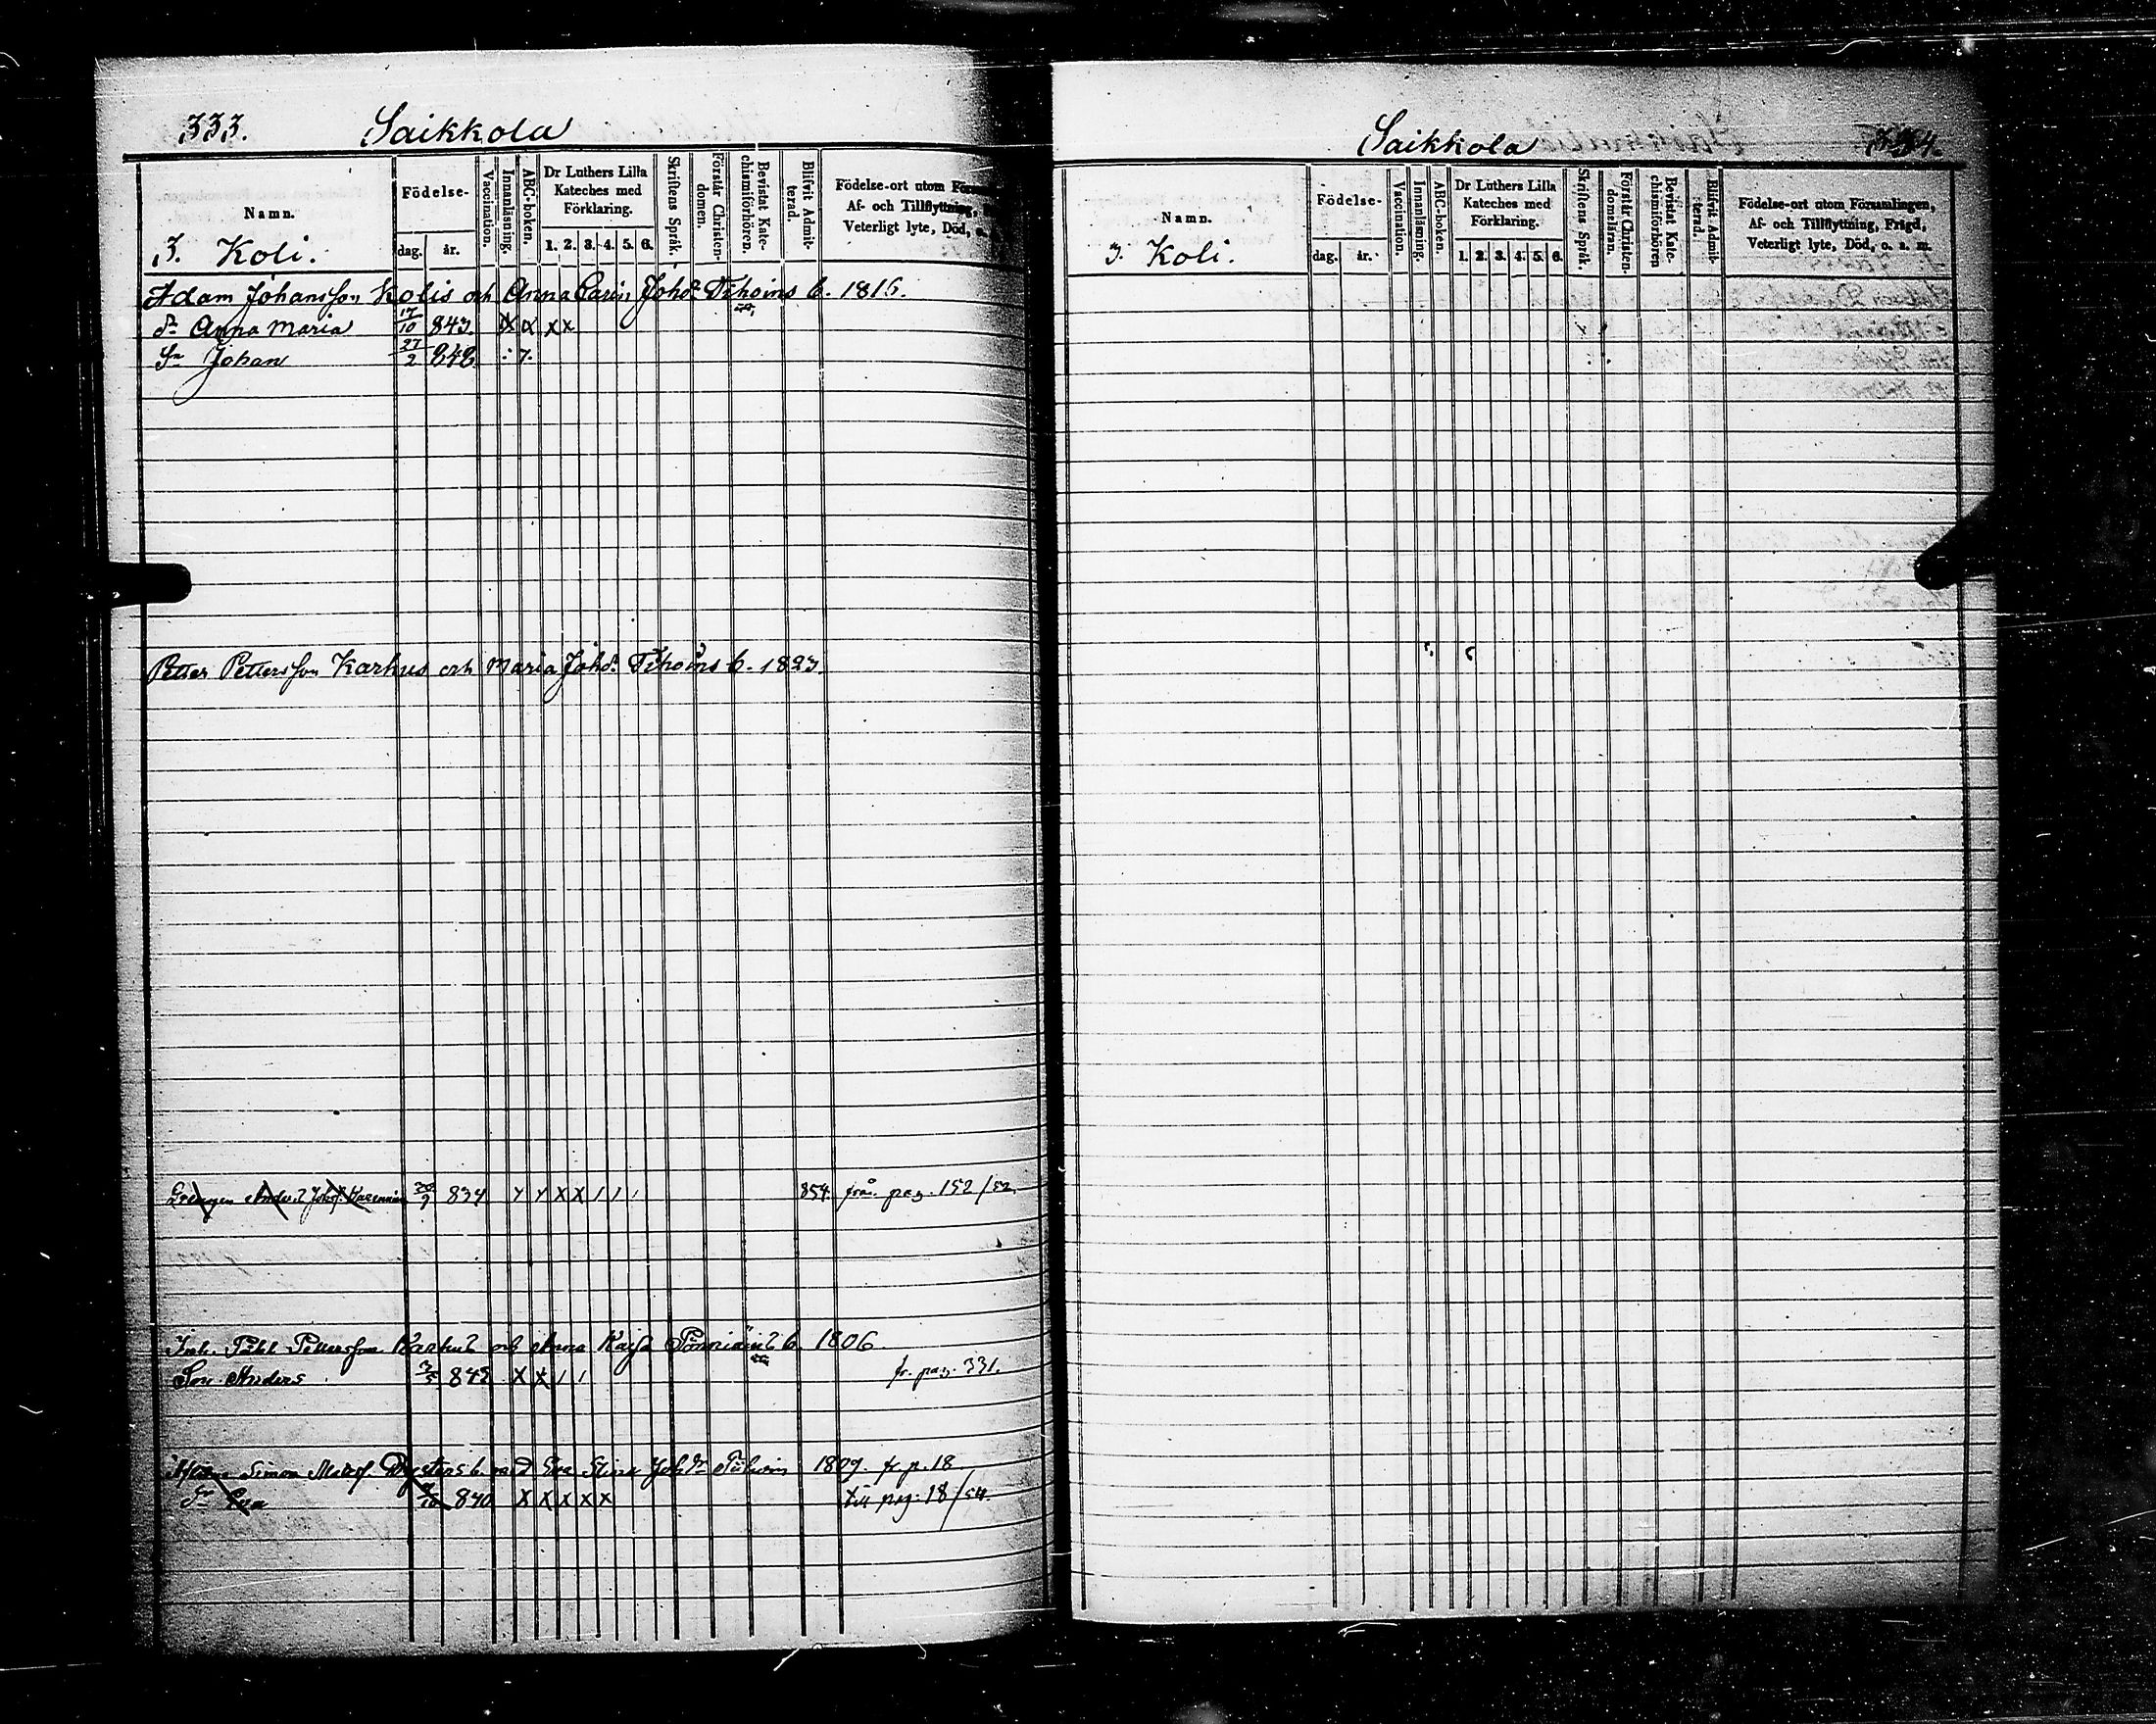 333. Saikkola
Namn.
Födelse-
dag. år.
Vaccination.
Innanläsning.
ABC-boken.
Dr Luthers Lilla
Kateches med
Förklaring.
1. 2. 3. 4. 5. 6.
Skriftens Språk.
Förstår Christen-
domen.
Bevistat Kate-
chismiförhören.
Blifvit Admit-
terad.
Födelse-ort utom
Af- och Tillflyttning,
Veterligt lyte, Död,
3. Koli.
Adam Johansson Kolis och Anna Carin Johd. Tihoins b. 1816.
dr Anna Maria 17/10 843. X X X X
Sn Johan 27/2 848.
Petter Pettersson Karhus och Maria Johd. Tihoins b. 1823.
834 X X 1 1 1 854. från pag. 152/52.
Pettersson Karhus och Anna Kaisa b. 1806
Son Anders 3/5 842 X X 1 1 fr. pag. 331.
Simon Matsf. b. med Eva Stina Johdr 1809. fr p. 18
dr Eva 840 X X X X X till pag. 18/54.
Saikkola 334.
Namn.
Födelse-
dag. år.
Vaccination.
Innanläsning.
ABC-boken.
Dr Luthers Lilla
Kateches med
Förklaring.
1. 2. 3. 4. 5. 6.
Skriftens Språk.
Förstår Christen-
domsläran.
Bevistat Kate-
chismiförhören
Blifvit Admit-
terad.
Födelse-ort utom Församlingen,
Af- och Tillflyttning, Frägd,
Veterligt lyte, Död, o. s. m.
3. Koli.